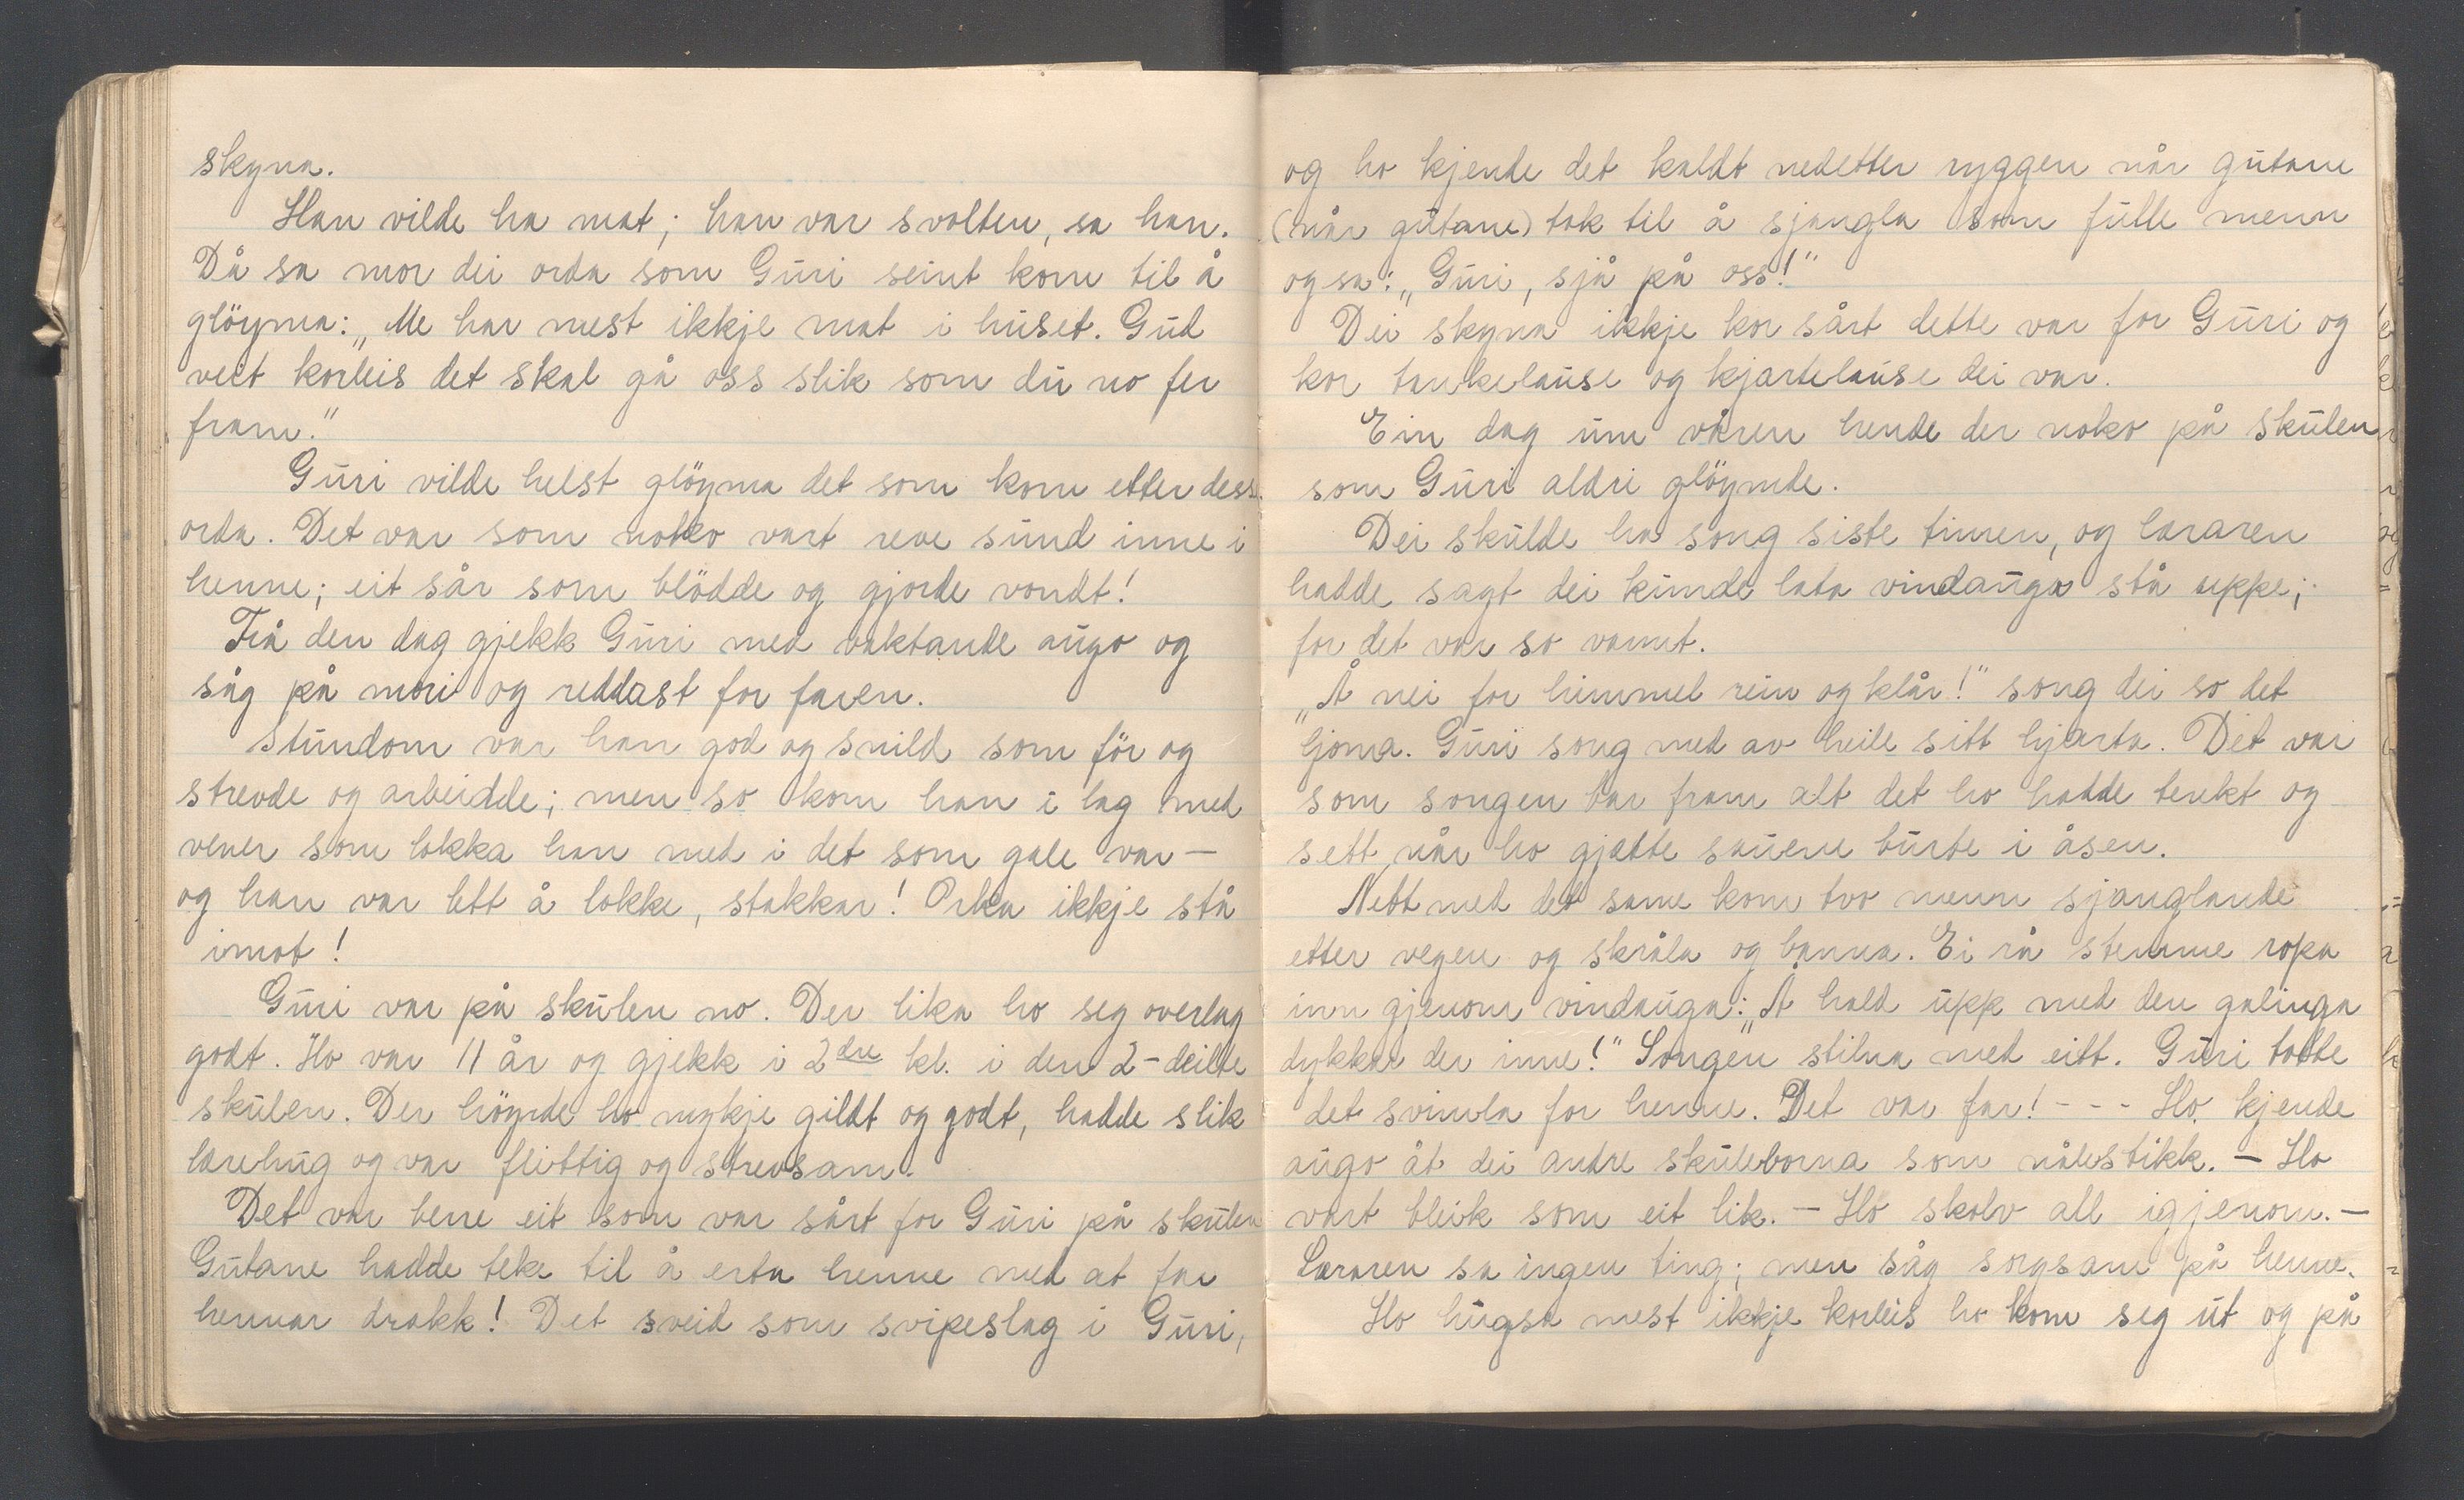 skyna.
Han vilde ha mat; han var svolten, sa han.
Då sa mor dei orda som Guri seint kom til å
glöyma: „Me har mest ikkje mat i huset. Gud
veit korleis det skal gå oss slik som du no fer
fram."
Guri vilde helst glöyma det som kom etter dess.
orda. Det var som noko vart reve sund inne i
henne; eit sår som blödde og gjorde vondt!
Frå den dag gjekk Guri med vaktande augo og
såg på mori og reddast for faren.
Stundom var han god og snild som för og
strevde og arbeidde; men so kom han i lag med
vener som lokka han med i det som gale var—
og han var lett å lokke, stakkar! Orka ikkje stå
imot!
Guri var på skulen no. Der lika ho seg overlag
godt. Ho var 11 år og gjekk i 2dre kl. i den 2-deilte
skulen. Der höyrde ho mykje gildt og godt, hadde slik
lærehug og var flittig og strevsam.
Det var berre eit som var sårt for Guri på skulen
Gutane hadde teke til å erta henne med at far
hennar drakk! Det sveid som svipeslag i Guri,
og ho kjende det kaldt nedetter ryggen når gutane
(når gutane) tok til å sjangla som fulle menn
og sa: „Guri, sjå på oss!"
Dei skyna ikkje kor sårt dette var for Guri og
kor tankelause og kjartelause dei var.
Ein dag um våren hende der noko på skulen
som Guri aldri glöymde.
Dei skulde ha song siste timen, og læraren
hadde sagt dei kunde lata vindauga stå uppe;
for det var so varmt.
„Å nei for himmel rein og klår!" song dei so det
ljoma. Guri song med av heile sitt hjarta. Det var
som songen bar fram alt det ho hadde tenkt og
sett når ho gjætte sauene burte i åsen.
Nett med det same kom tvo menn sjanglande
etter vegen og skråla og banna. Ei rå stemme ropa
inn gjenom vindauga: „Å hald upp med den galinga
dykkar der inne!" Songen stilna med eitt. Guri totte
det svimla for henne. Det var far! - - - Ho kjende
augo åt dei andre skuleborna som nålestikk. — Ho
vart bleik som eit lik. — Ho skolv all igjenom. —
Læraren sa ingen ting; men såg sorgsam på henne.
Ho hugsa mest ikkje korleis ho kom seg ut og på